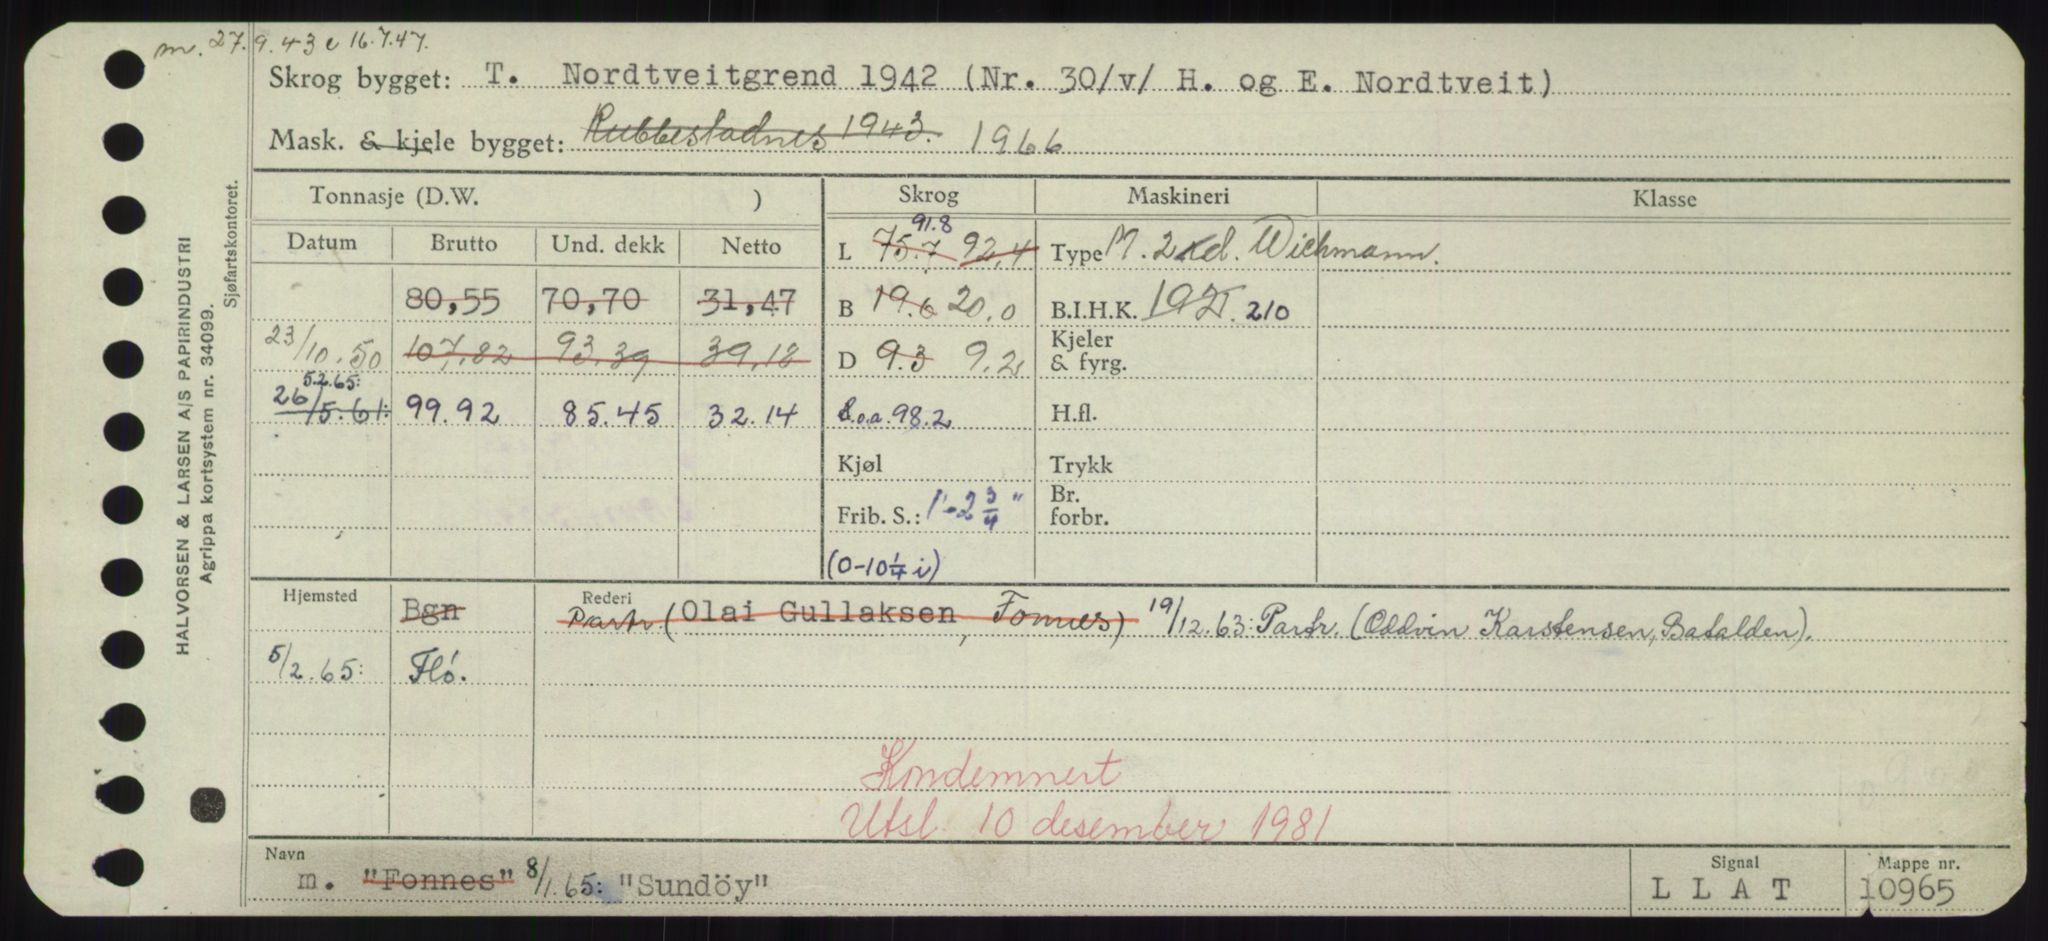 m. 27.9.43 e 16.7.47.
Skrog bygget: T. Nordtveitgrend 1942 (Nr. 30/v/ H. og E. Nordtveit)
Mask. & kjele bygget: Rubbestadnes 1943. 1966
HALVORSEN & LARSEN A/S PAPIRINDUSTRI
Agrippa kortsystem nr. 34099.
Sjøfartskontoret.
Tonnasje (D.W. ) Skrog Maskineri Klasse
Datum Brutto Und. dekk Netto
91.8
L 75.7 92,4 Type M. 2 Wichmann.
80,55 70,70 31,47 B 19.6 20.0 B.I.H.K. 210
23/10.50 107,82 93.39 39,18 D 9.3 9.2 Kjeler & fyrg.
5.2.65:
26/5.61: 99.92 85.45 32.14 L.o.a. 98.2 H.fl.
Kjøl Trykk
Frib. S.: 1'-2 3/4" Br. forbr.
(0-10 1/4 i)
Hjemsted Bgn Rederi Partr. (Olai Gullaksen, Fonnes) 19/12.63: Partr. (Oddvin Karstensen, Batalden).
5/2.65: Flö.
Kondemnert
Utsl. 10 desember 1981
Navn Signal Mappe nr.
m. "Fonnes" 8/1.65: "Sundöy" L L A T 10965